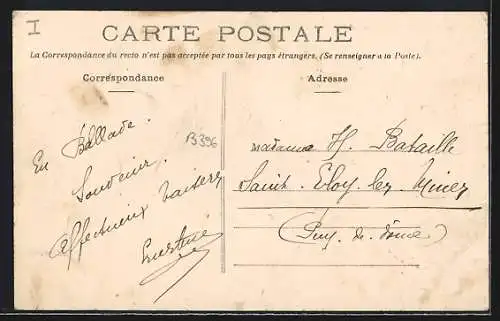 I
CARTE POSTALE
La Correspondance du recto n'est pas acceptée par tous les pays étrangers. (Se renseigner à la Poste).
Correspondance
Adresse
En Ballade.
Souvenir,
affectueux baisers
B396
Madame H. Bataille
Saint. Eloy les Mines
(Puy. de. dôme)